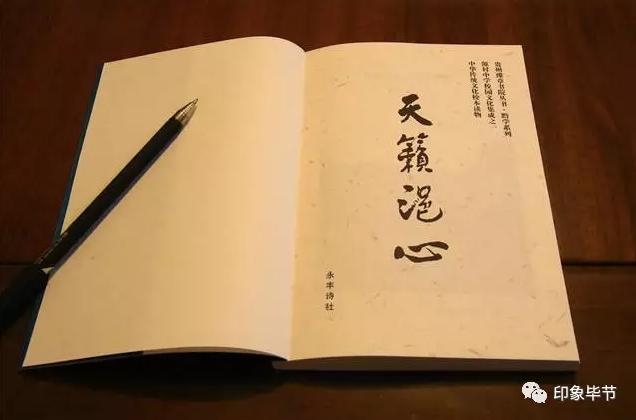 贵州豫章书院丛书·黔学系列
源村中学校园文化集成之一
中华传统文化校本读物
天籁浥心
永丰诗社
印象毕节